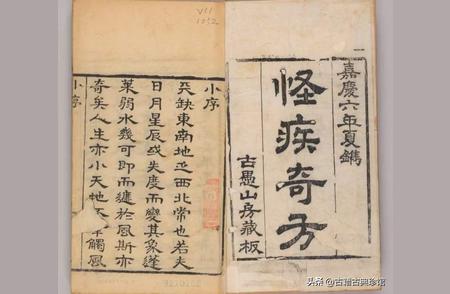 嘉慶六年夏鐫
怪疾奇方
古愚山房藏板
VII
1052
小序
天缺東南地乏西北常也若夫
日月星辰或失度而變其象蓬
萊弱水幾可即而於風斯亦
奇矣人生亦小天地不觸風
小序
头条 @古籍古典珍馆